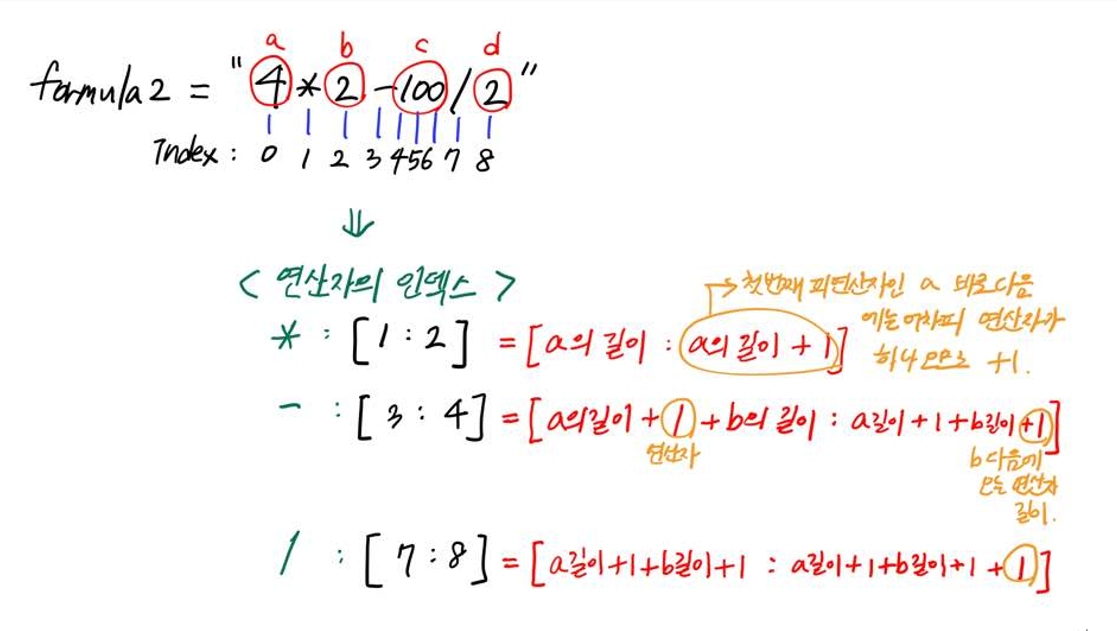 a b c d
formula2 = "4*2-100/2"
Index : 0 1 2 3 4 5 6 7 8
⇓
< 연산자의 인덱스 >
→ 첫번째 피연산자인 a 바로다음
에는 어차피 연산자가
하나 므로 +1.
* : [1 : 2] = [a의 길이 : a의 길이 + 1]
- : [3 : 4] = [a의길이 + 1 + b의 길이 : a길이 + 1 + b길이 +1]
연산자
b다음에
오는 연산자
길이.
/ : [7 : 8] = [a길이+1+b길이+1 : a길이+1+b길이+1 + 1]